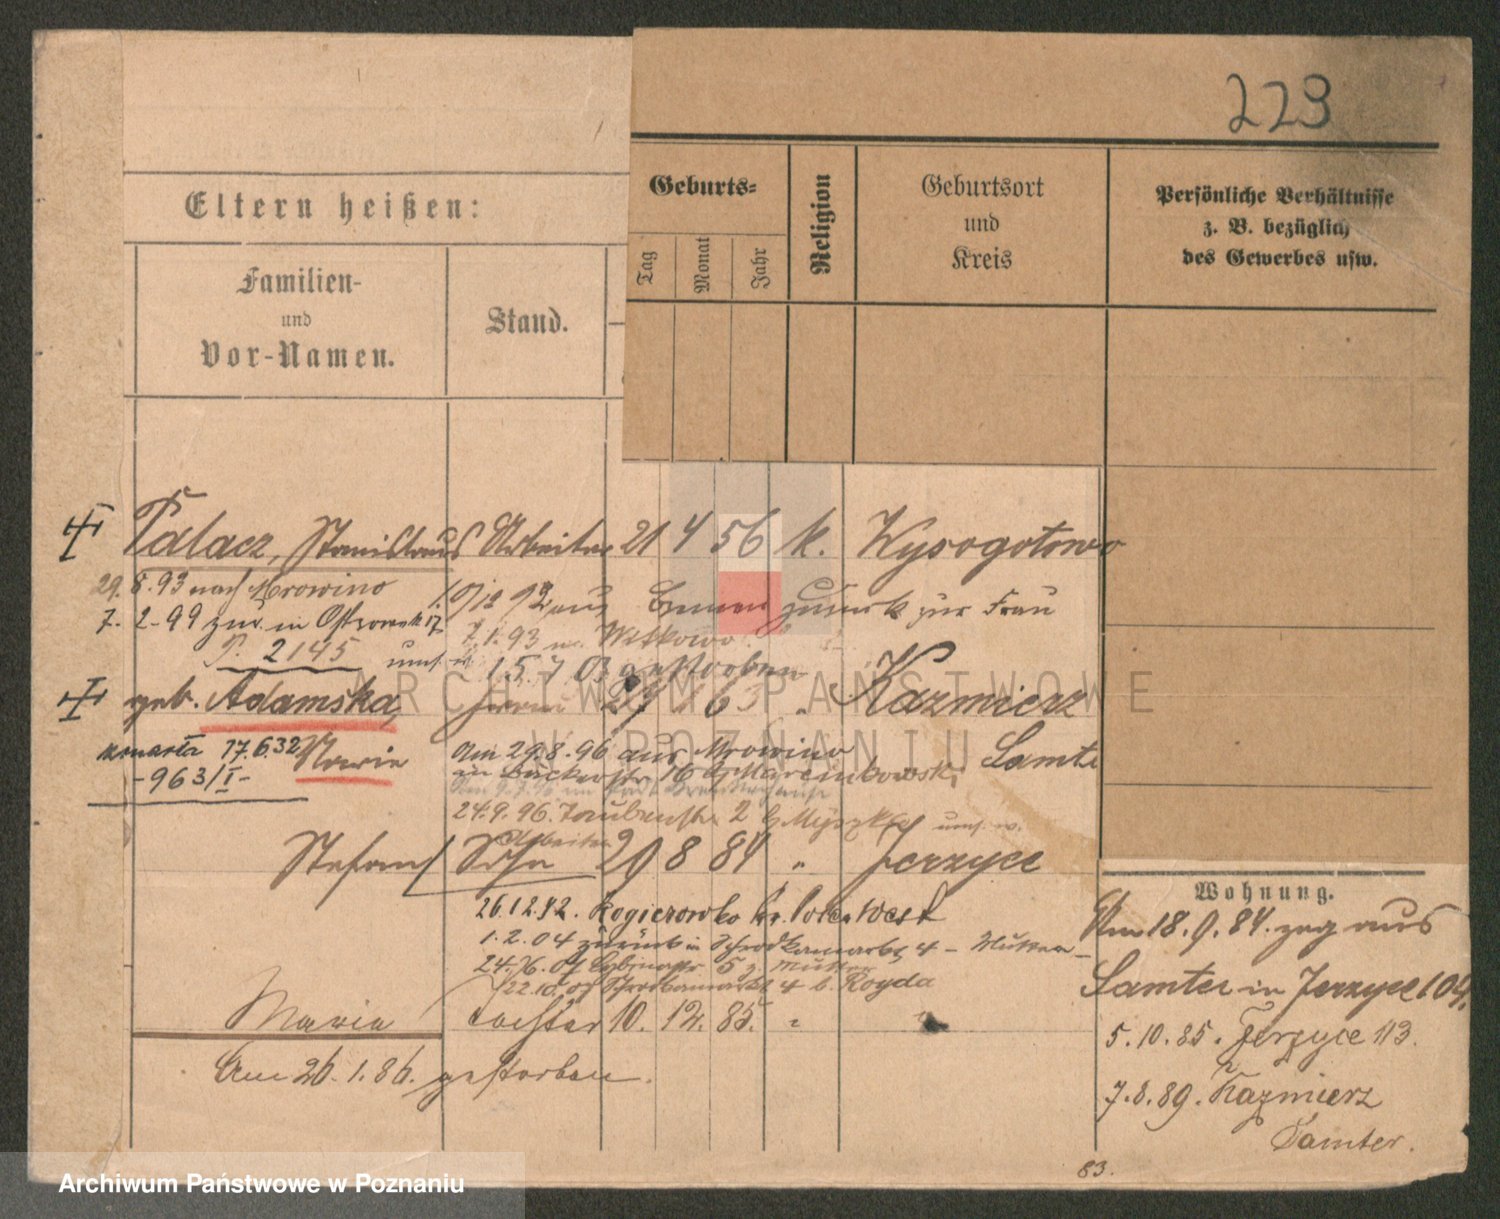 223
Eltern heißen:
Familien-
und
Vor-Namen.
Stand.
Geburts-
Tag
Monat
Jahr
Religion
Geburtsort
und
Kreis
Persönliche Verhältnisse
z. B. bezüglich
des Gewerbes usw.
Palacz, Stanislaus Arbeiter 21 4 56 k. Wysogotowo
29. 8. 93 nach Mrowino
10/12 92 aus zurück zur Frau
7. 2. 99 zur. in Ostrowek 17
7. 1. 93 n. Witkowo
P. 2145 umf. w.
15. 7. 03 gestorben
geb. Adamska, 27 63 Kazmierz
Marie Samte
zmarła 17.6.32
-963/I-
Am 29.8.96 aus Mrowino
in Bäckerstr. 16 b. Marcinkowski
24.9.96. Taubenstr. 2 b. Myszk umf. w.
Arbeiter
Stefan Sohn 29 8 84 " Jerzyce
26.12.92. Rogierowko Kr. Posen West
1. 2. 04 zurück in Schrodkamarkt 4 - Mutter -
5 z. Mutter
22.10.07 Schrodkamarkt 4 b. Rogda
Maria Tochter 10. 12. 85. "
Am 26. 1. 86. gestorben.
Wohnung.
Am 18. 9. 84. zog aus
Samter in Jerzyce 109.
5. 10. 85. Jerzyce 113.
7. 8. 89. Kazmierz
Samter.
83.
ARCHIWUM PAŃSTWOWE
W POZNANIU
Archiwum Państwowe w Poznaniu